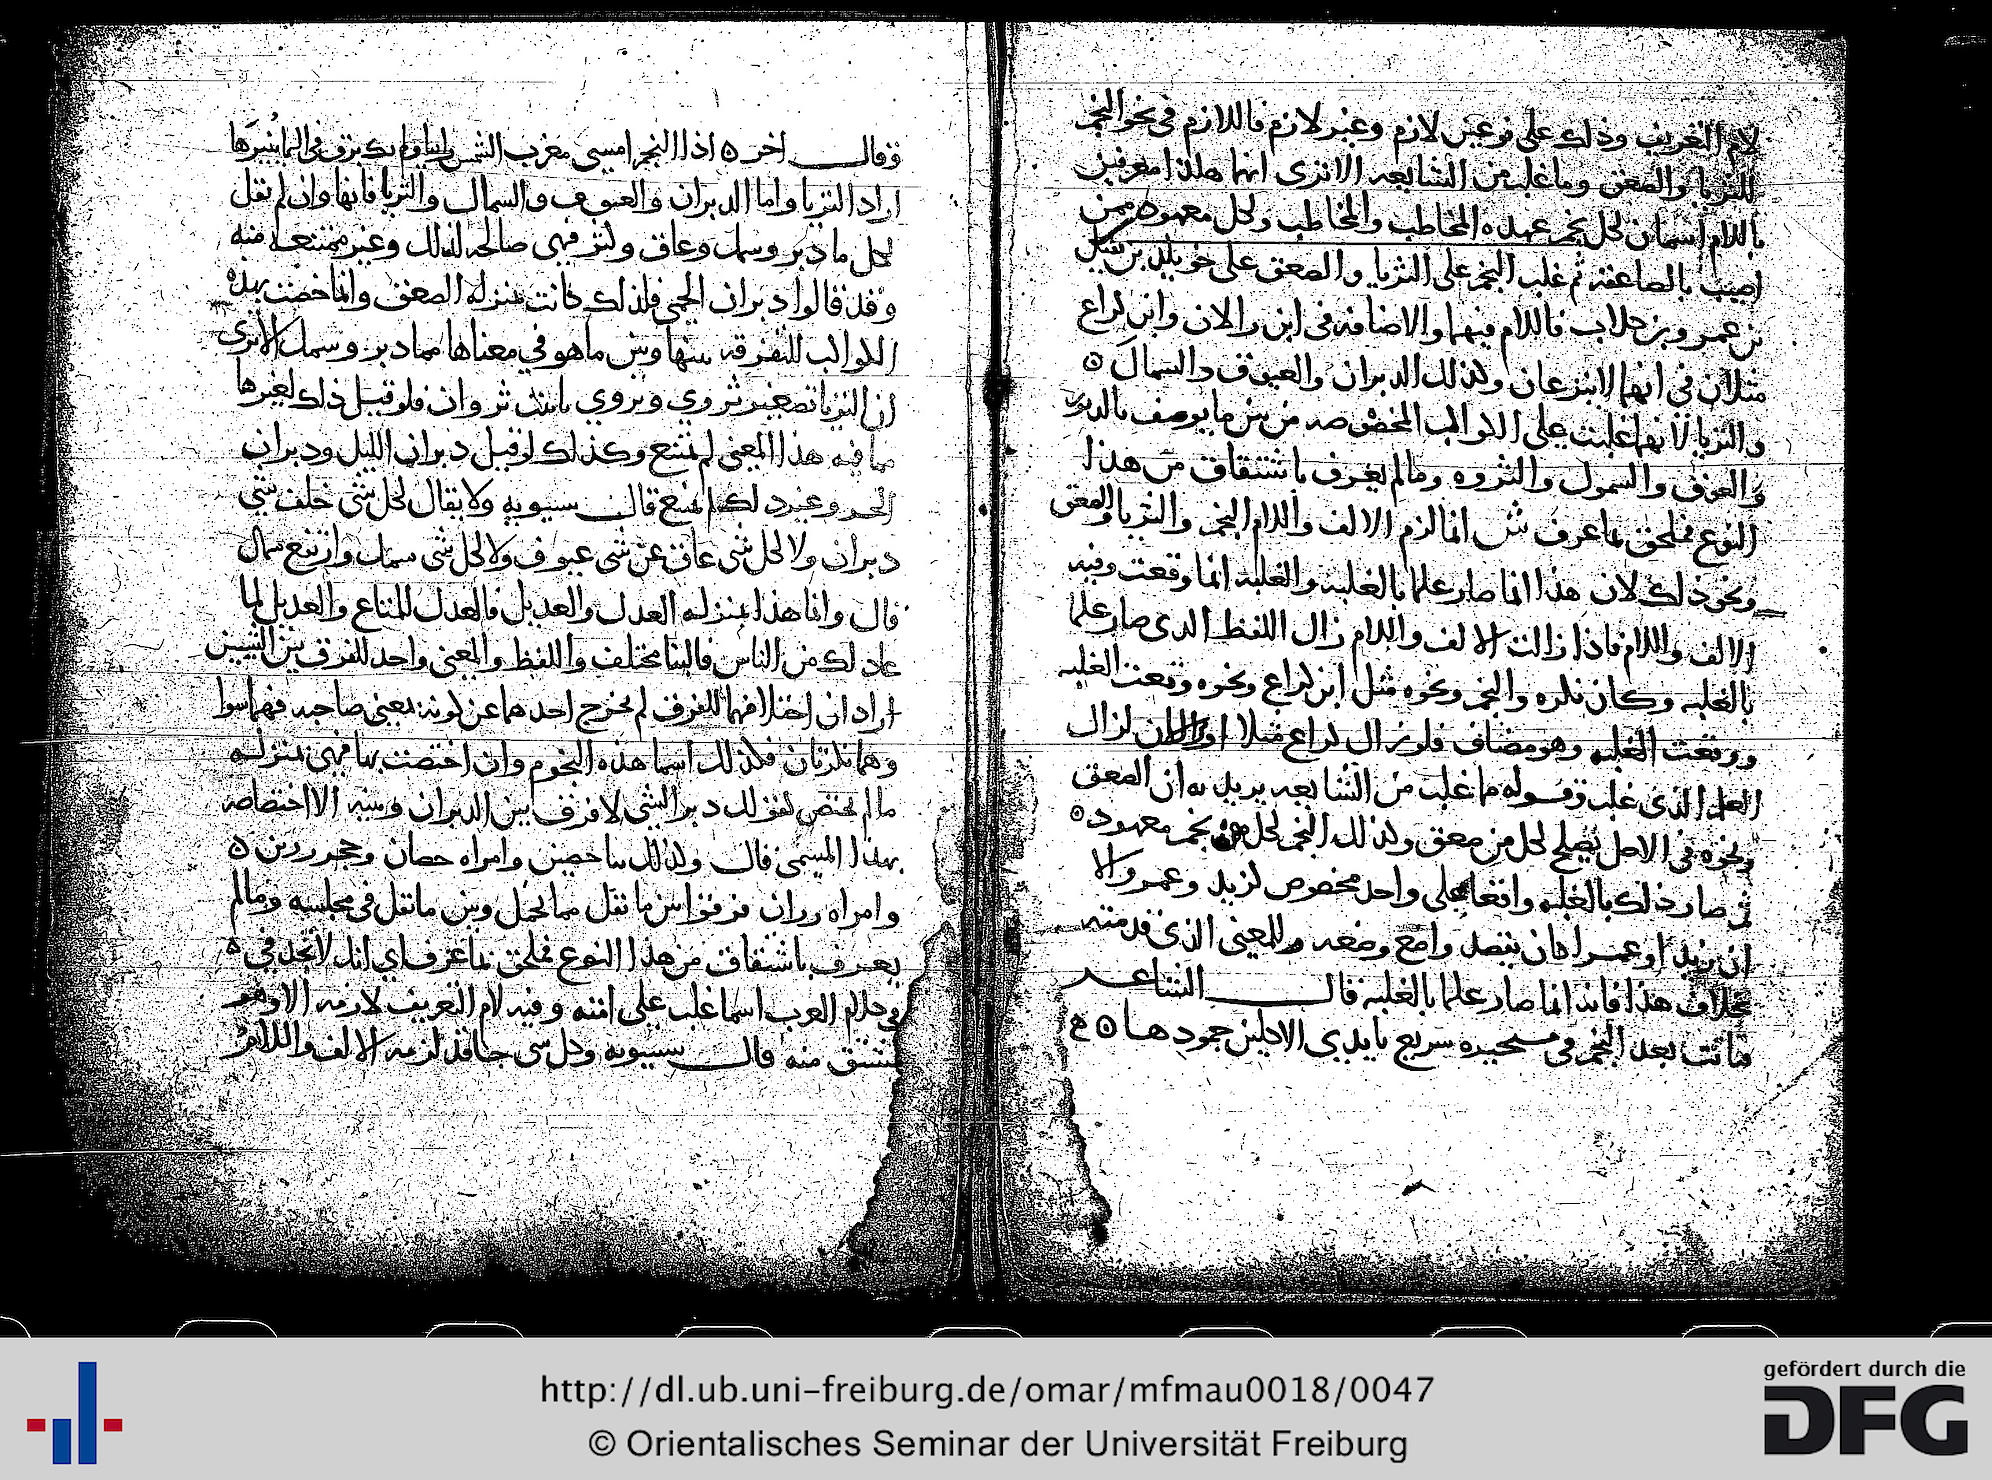 لام التعريف وذلك على نوعين لازم وغير لازم فاللازم في نحو النجم
للثريا والصعق وما غلب من الشايعه الا ترى انهما هكذا معرفين
باللام اسمان لكل نجم عهده المخاطب والمخاطب ولكل معهود ممن
اصيب بالصاعقة ثم غلب النجم على الثريا والصعق على خويلد بن نفيل
بن عمرو بن كلاب فاللام فيهما والاضافه في ابن رالان وابن كراع
مثلان في انهما لا ينزعان وكذلك الدبران والعيوق والسماك ه
والثريا لانها غلبت على الكواكب المخصوصه من بين ما يوصف بالدبور
والعوق والسموك والثروه وما لم يعرف باشتقاق من هذا
النوع فملحق بما عرف ش انما لزم الالف واللام النجم والثريا والصعق
ونحو ذلك لان هذا انما صار علما بالغلبه والغلبه انما وقعت وفيه
الالف واللام فاذا زالت الالف واللام زال اللفظ الذي صار علما
بالغلبه وكان نكره والنجم ونحوه مثل ابن كراع ونحوه وقعت الغلبه
ووقعت الغلبه وهو مضاف فلو زال كراع مثلا او رالان لزال
العلم الذي غلب وقوله ما غلب من الشايعه يريد به ان الصعق
ونحوه في الاصل يصلح لكل من صعق وكذلك النجم لكل نجم معهود ه
ثم صار ذلك بالغلبه واقعا على واحد مخصوص كزيد وعمرو الا
ان زيدا وعمرا كان بقصد واضع وضعه وللمعنى الذي قدمته
بخلاف هذا فانه انما صار علما بالغلبه قال الشاعر
فباتت تعد النجم في مستحيره سريع بايدي الاكلين جمودها ه
وقال اخر ه اذا النجم امسى مغرب الشمس
اراد الثريا واما الدبران والعيوق والسماك والثريا فانها وان لم تقل
لكل ما دبر وسمك وعاق وثر فهي صالحه لذلك وغير ممتنعه منه
وقد قالوا دبران الحمى فلذلك كانت بمنزله الصعق وانما خصت بهذه
الكواكب للتفرقه بينها وبين ما هو في معناها مما دبر وسمك الا ترى
ان الثريا تصغير ثروي وثروي تانيث ثروان فلو قيل ذلك لغيرها
مما فيه هذا المعنى لم يمتنع وكذلك لو قيل دبران الليل ودبران
الحر وغير ذلك لم يمتنع قال سيبويه ولا يقال لكل شي خلف شي
دبران ولا لكل شي عاق عن شي عيوق ولا لكل شي سمك وارتفع سماك
قال وانما هذا بمنزله العدل والعديل فالعدل للمتاع والعديل لما
عادلك من الناس فالبنا مختلف واللفظ والمعنى واحد للفرق بين الشيين
اراد ان اختلافهما للفرق لم يخرج احدهما عن كونه بمعنى صاحبه فهما سوا
وهما نكرتان فكذلك اسما هذه النجوم وان اختصت بها فهي بمنزله
ما لم يختص كقولك دبر الشي لا فرق بين الدبران وبينه الا اختصاصه
بهذا المسمى قال وكذلك بنا حصين وامراه حصان وحجر رزين ه
وامراه رزان فرقوا بين ما ثقل مما يحمل وبين ما ثقل في مجلسه وما لم
يعرف باشتقاق من هذا النوع فملحق بما عرف اي انك لا تجد في ه
في كلام العرب اسما غلب على امته وفيه لام التعريف لازمه الا وهو
مشتق منه قال سيبويه وكل شي جا قد لزمه الالف واللام
http://dl.ub.uni-freiburg.de/omar/mfmau0018/0047
© Orientalisches Seminar der Universität Freiburg
gefördert durch die
DFG